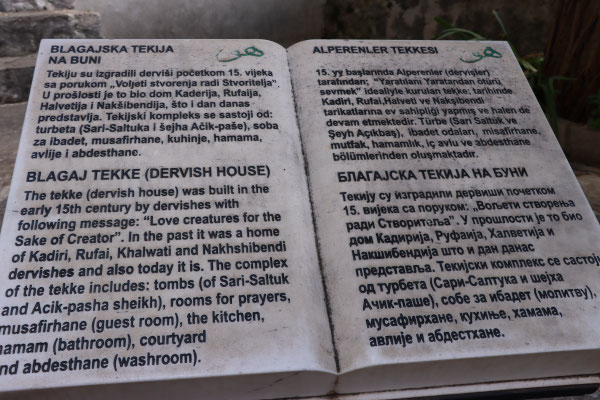 BLAGAJSKA TEKIJA
NA BUNI
Tekiju su izgradili derviši početkom 15. vijeka
sa porukom „Voljeti stvorenja radi Stvoritelja”.
U prošlosti je to bio dom Kaderija, Rufaija,
Halvetija i Nakšibendija, što i dan danas
predstavlja. Tekijski kompleks se sastoji od:
turbeta (Sari-Saltuka i šejha Ačik-paše), soba
za ibadet, musafirhane, kuhinje, hamama,
avlije i abdesthane.
BLAGAJ TEKKE (DERVISH HOUSE)
The tekke (dervish house) was built in the
early 15th century by dervishes with
following message: “Love creatures for the
Sake of Creator”. In the past it was a home
of Kadiri, Rufai, Khalwati and Nakhshibendi
dervishes and also today it is. The complex
of the tekke includes: tombs (of Sari-Saltuk
and Acik-pasha sheikh), rooms for prayers,
musafirhane (guest room), the kitchen,
hamam (bathroom), courtyard
nd abdesthane (washroom).
ALPERENLER TEKKESI
15. yy başlarında Alperenler (dervişler)
tarafından; “Yaratılanı Yaratandan ötürü
sevmek” idealiyle kurulan tekke; tarihinde
Kadiri, Rufai,Halveti ve Nakşibendi
tarikatlarına ev sahipliği yapmış ve halen de
devam etmektedir. Türbe (Sarı Saltuk ve
Şeyh Açıkbaş), ibadet odaları, misafirhane,
mutfak, hamamlık, iç avlu ve abdesthane
bölümlerinden oluşmaktadır.
БЛАГАЈСКА ТЕКИЈА НА БУНИ
Текију су изградили дервиши почетком
15. вијека са поруком: „Вољети створења
ради Створитеља”. У прошлости је то био
дом Кадирија, Руфаија, Халветија и
Накшибендија што и дан данас
представља. Текијски комплекс се састоји
од турбета (Сари-Салтука и шејха
Ачик-паше), собе за ибадет (молитву),
мусафирхане, кухиње, хамама,
авлије и абдестхане.